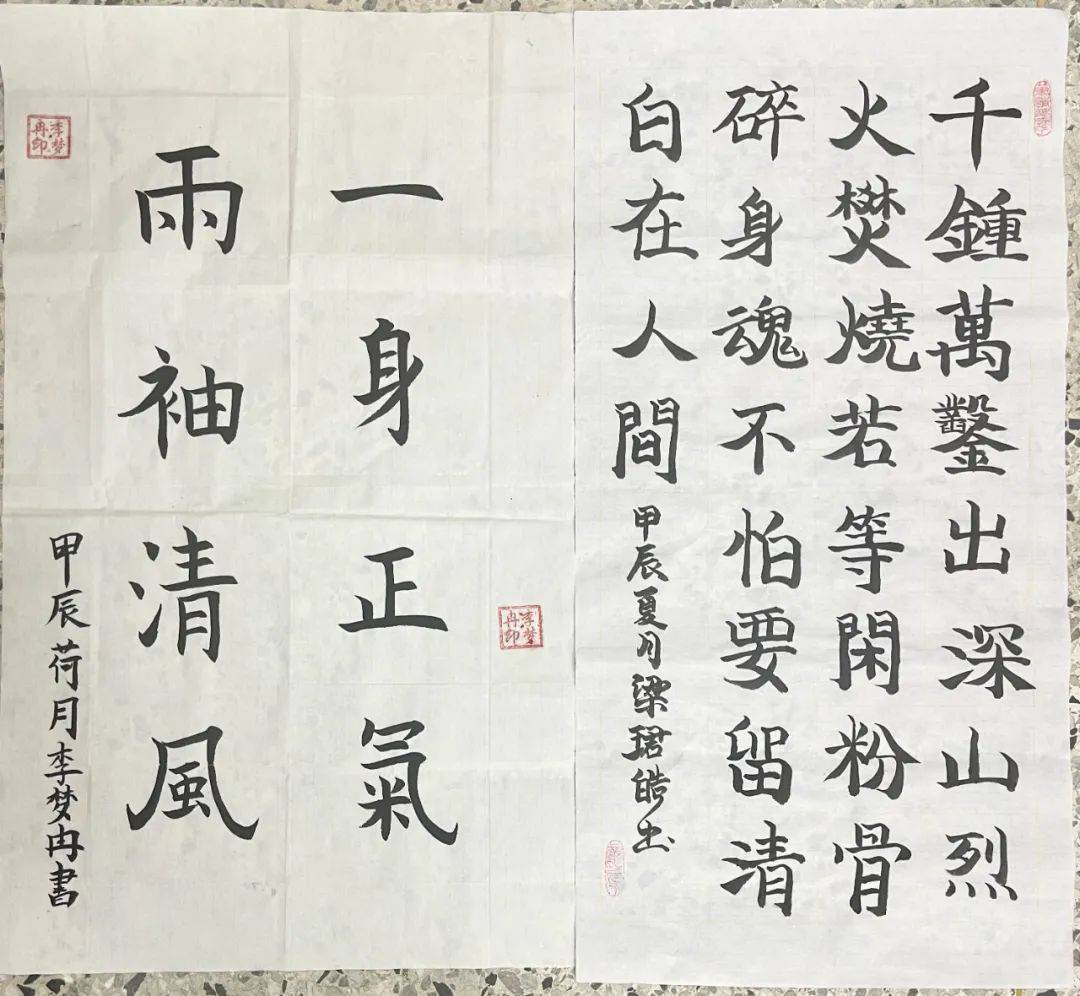 千鍾萬鑿出深山烈
火燓燒若等閑粉骨
碎身魂不怕要留清
白在人間
甲辰夏月梁珺皓书
李梦冉印
一身正氣
雨袖清風
甲辰荷月李梦冉書
李梦冉印